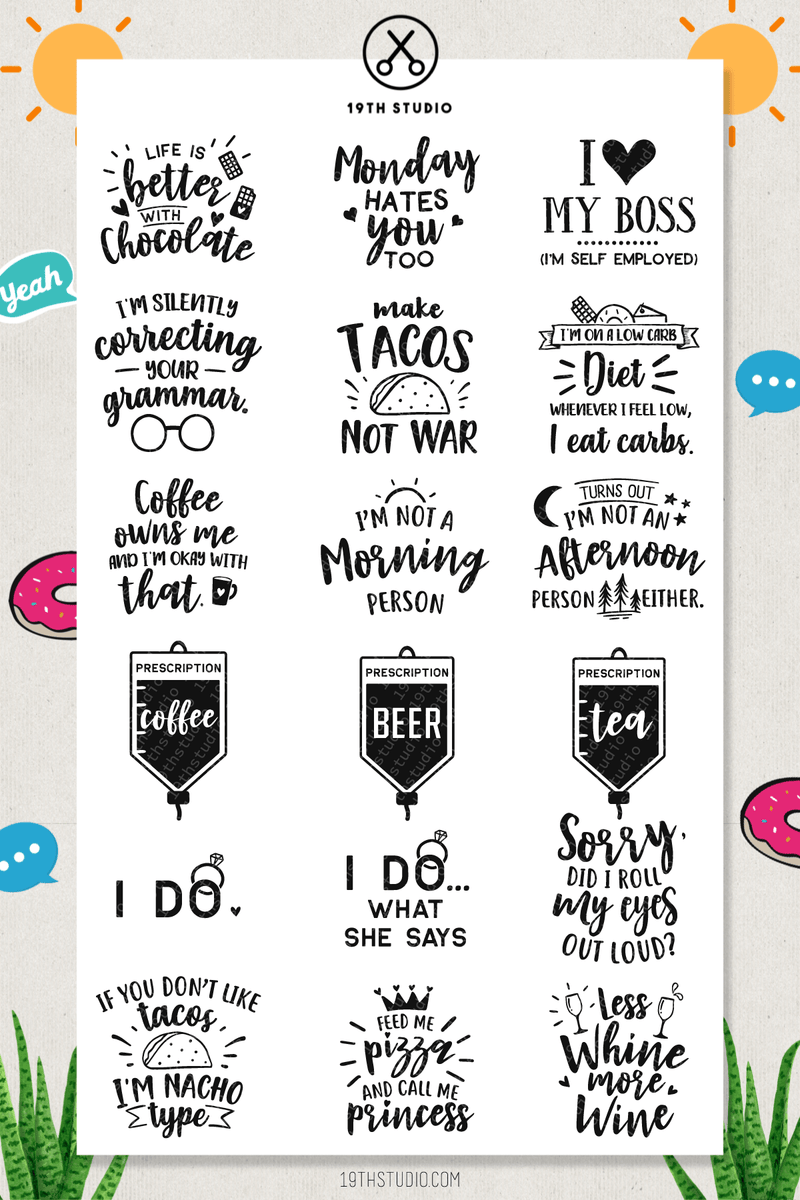 19TH STUDIO
LIFE IS
better
WITH
Chocolate
Monday
HATES
you
TOO
I
MY BOSS
(I'M SELF EMPLOYED)
Yeah
I'M SILENTLY
correcting
YOUR
grammar.
make
TACOS
NOT WAR
I'M ON A LOW CARB
Diet
WHENEVER I FEEL LOW,
I eat carbs.
Coffee
owns me
AND I'M OKAY WITH
that.
I'M NOT A
Morning
PERSON
TURNS OUT
I'M NOT AN
Afternoon
PERSON EITHER.
PRESCRIPTION
coffee
PRESCRIPTION
BEER
PRESCRIPTION
tea
I DO
I DO...
WHAT
SHE SAYS
Sorry,
DID I ROLL
my eyes
OUT LOUD?
IF YOU DON'T LIKE
tacos
I'M NACHO
type
FEED ME
pizza
AND CALL ME
princess
Less
Whine
more
Wine
19THSTUDIO.COM